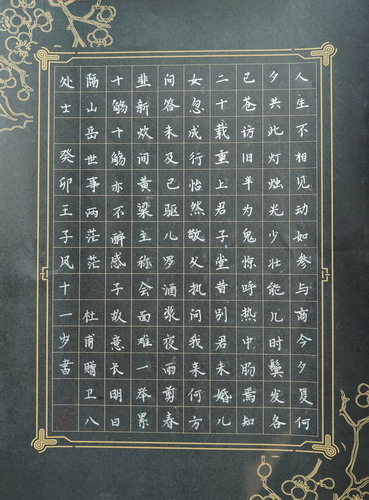 人生不相见动如参与商今夕复何
夕共此灯烛光少壮能几时鬓发各
已苍访旧半为鬼惊呼热中肠焉知
二十载重上君子堂昔别君未婚儿
女忽成行怡然敬父执问我来何方
问答未及已驱儿罗酒浆夜雨剪春
韭新炊间黄粱主称会面难一举累
十觞十觞亦不醉感子故意长明日
隔山岳世事两茫茫 杜甫赠卫八
处士 癸卯王子凤十一岁书